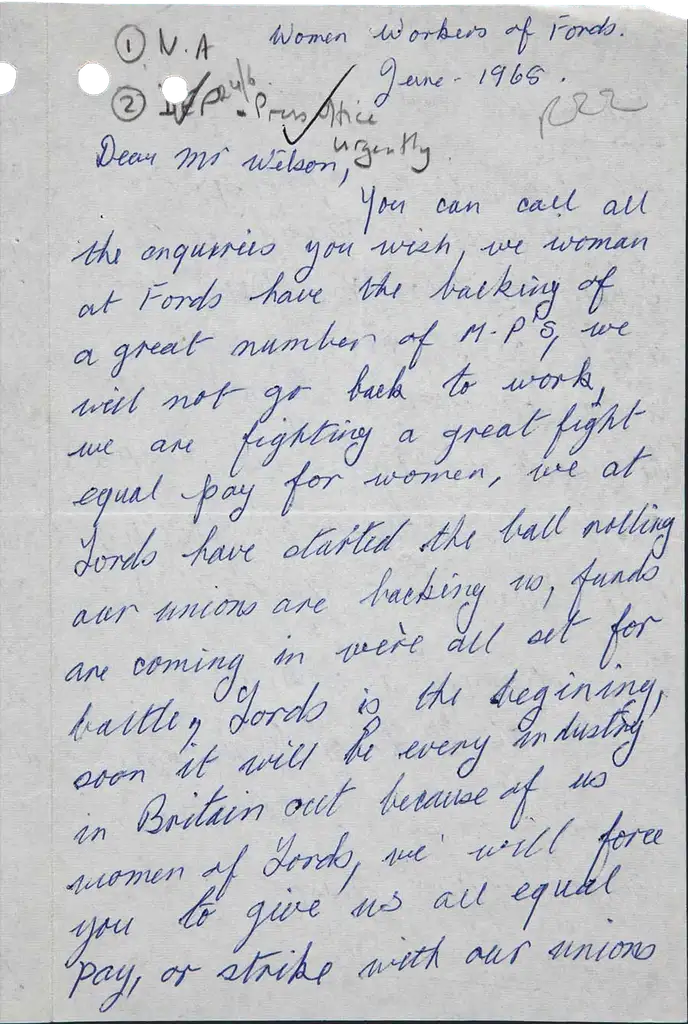 ① N.A
Women Workers of Fords.
June - 1968.
② DEP 24/6 - Press Office
urgently
Dear Mr Wilson,
You can call all
the enquiries you wish, we woman
at Fords have the backing of
a great number of M.P's, we
will not go back to work,
we are fighting a great fight
equal pay for women, we at
Fords have started the ball rolling
our unions are backing us, funds
are coming in we're all set for
battle, Fords is the begining,
soon it will be every industry
in Britain out because of us
women of Fords, we will force
you to give us all equal
pay, or strike with our unions